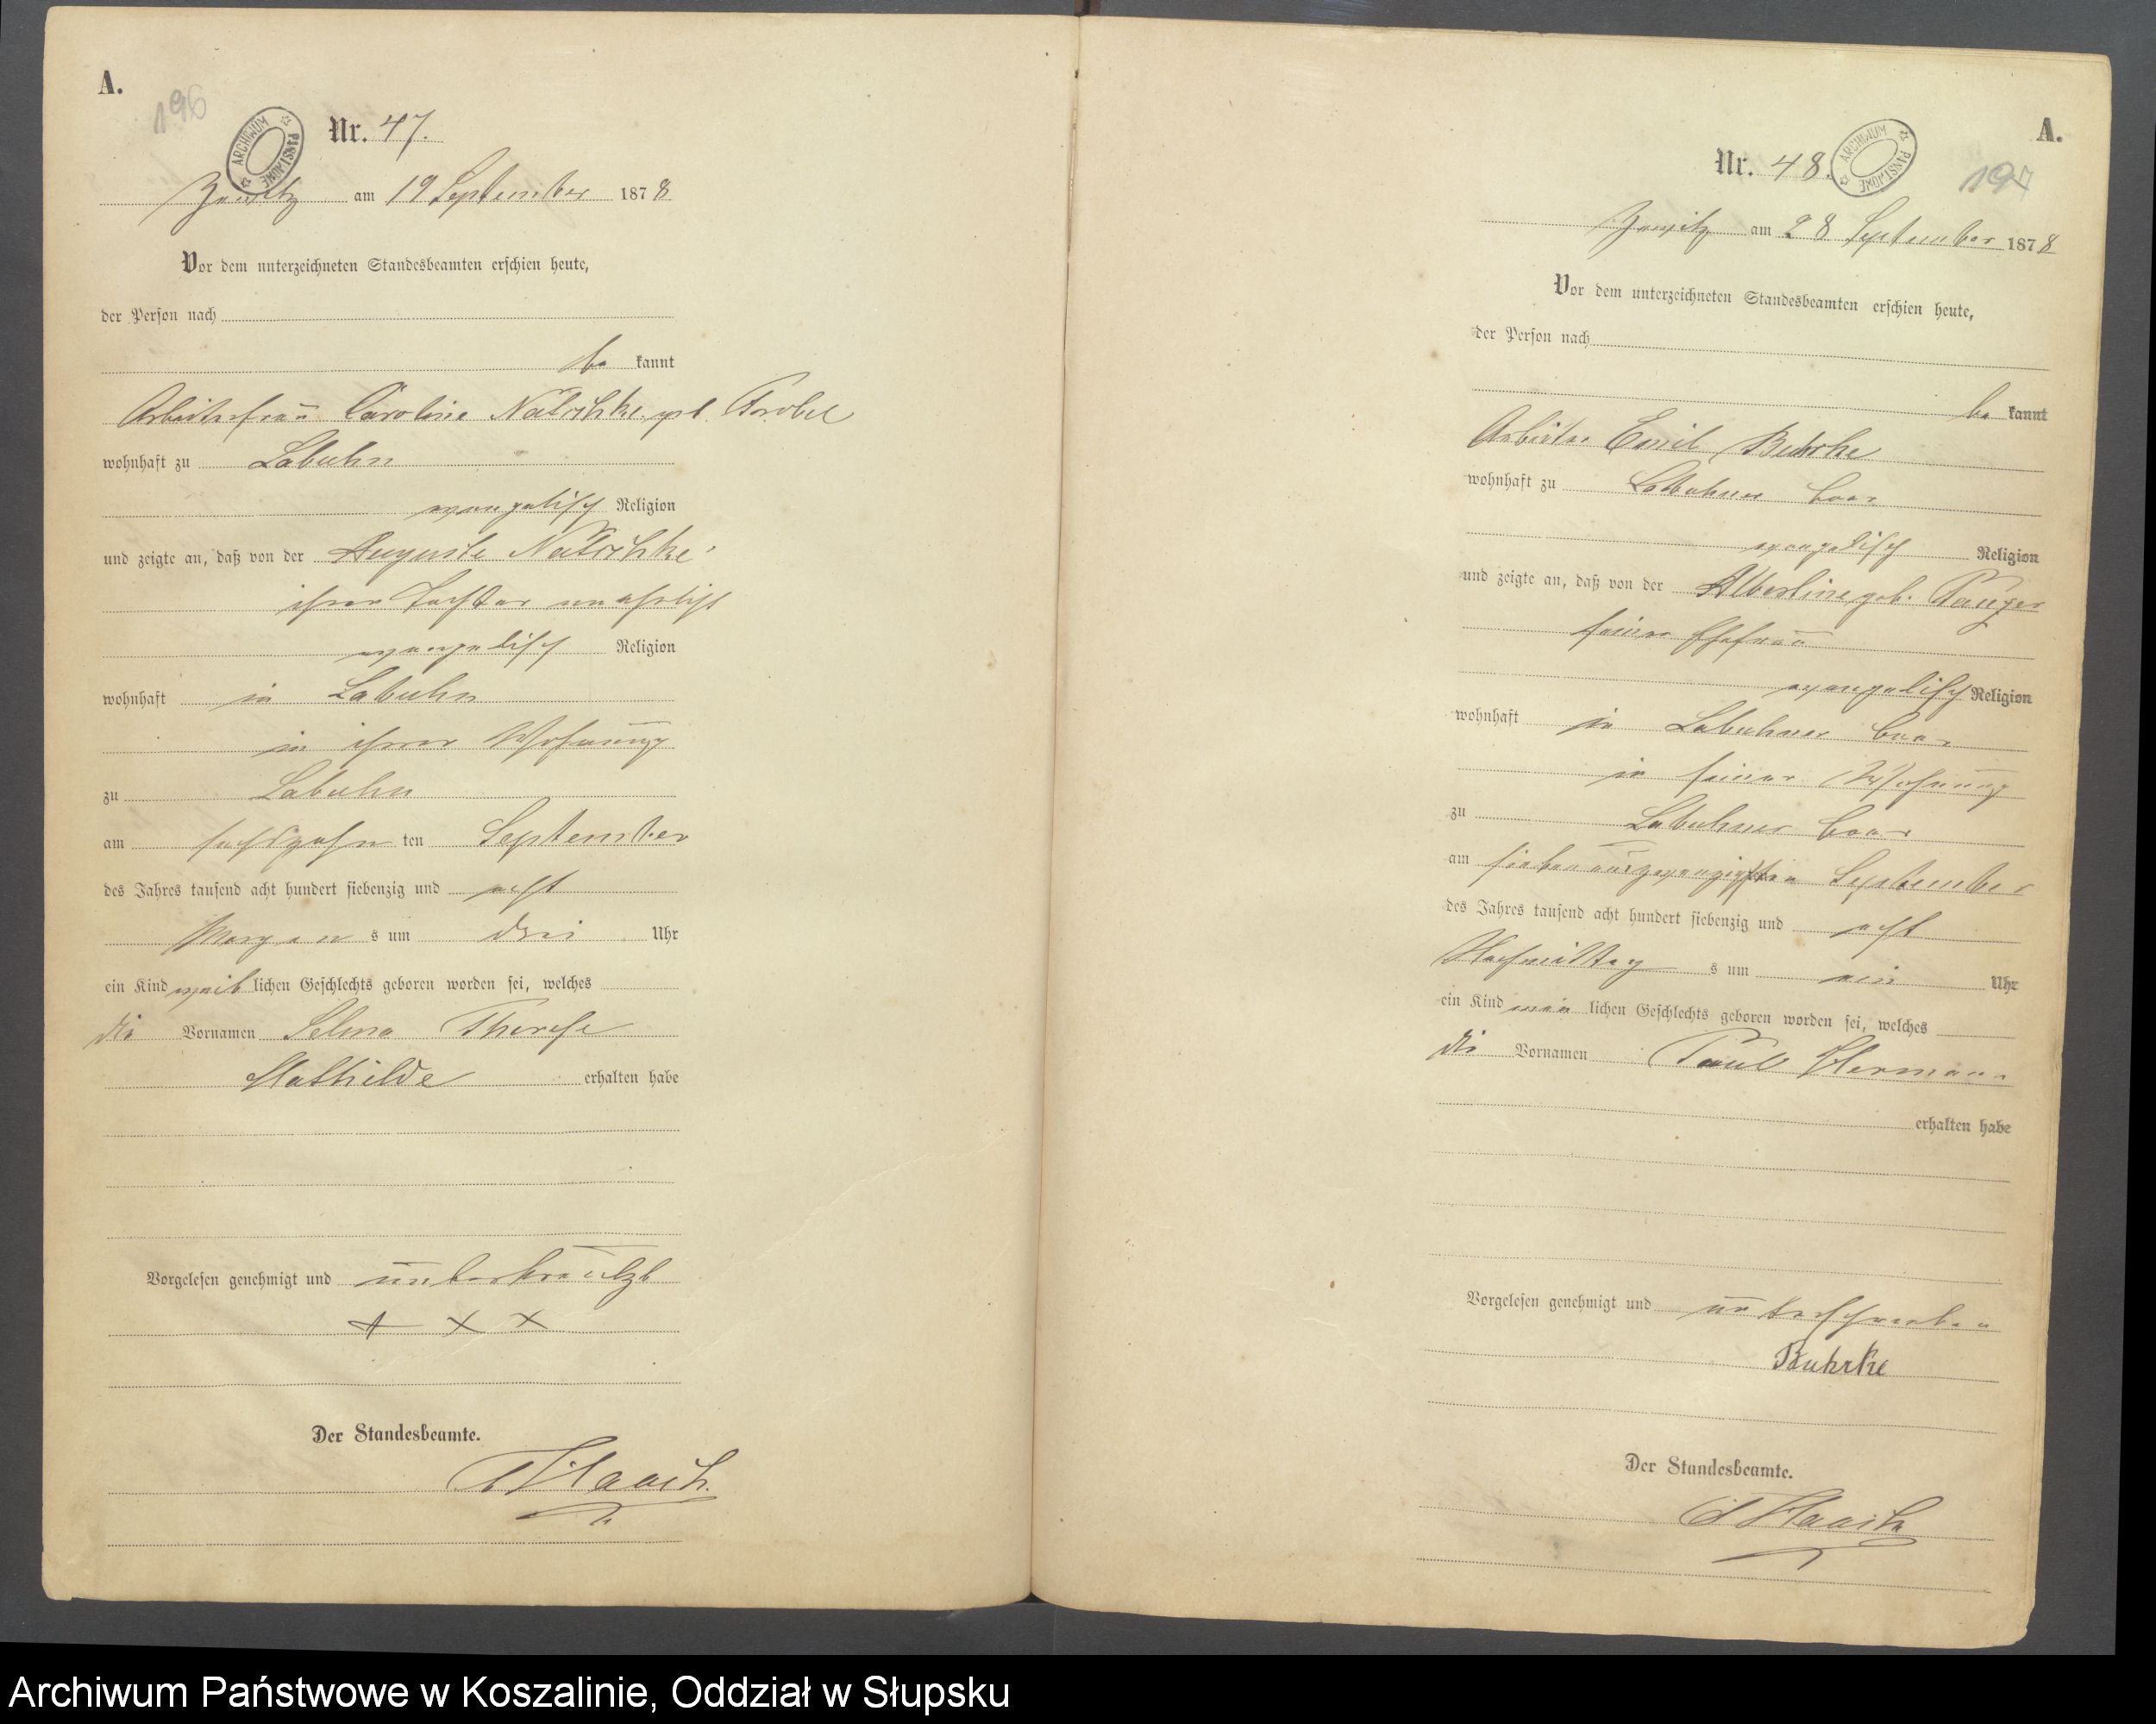 A.
196
ARCHIWUM PAŃSTWOWE
Nr. 47.
am 19 September 1878
Vor dem unterzeichneten Standesbeamten erschien heute,
der Person nach
be kannt
Arbeiterfrau Caroline Natschke geb. Trobel
wohnhaft zu Labuhn
evangelisch Religion
und zeigte an, daß von der Auguste Natschke
ihrer Tochter unehelich
evangelisch Religion
wohnhaft in Labuhn
in ihrer Wohnung
zu Labuhn
am sechszehn ten September
des Jahres tausend acht hundert siebenzig und acht
Morgen s um drei Uhr
ein Kind weib lichen Geschlechts geboren worden sei, welches
die Vornamen Selma Therese
Mathilde erhalten habe
Vorgelesen genehmigt und unterkreuzt
+ × ×
Der Standesbeamte.
A.
Nr. 48.
ARCHIWUM PAŃSTWOWE
197
am 28 September 1878
Vor dem unterzeichneten Standesbeamten erschien heute,
der Person nach
be kannt
Arbeiter Emil Buhrke
wohnhaft zu Labuhner
evangelisch Religion
und zeigte an, daß von der Albertine geb.
seiner Ehefrau
evangelisch Religion
wohnhaft in Labuhner
in seiner Wohnung
zu Labuhner
am siebenundzwanzigsten September
des Jahres tausend acht hundert siebenzig und acht
Nachmittag s um ein Uhr
ein Kind män lichen Geschlechts geboren worden sei, welches
die Vornamen Paul Hermann
erhalten habe
Vorgelesen genehmigt und unterschrieben
Buhrke
Der Standesbeamte.
Archiwum Państwowe w Koszalinie, Oddział w Słupsku